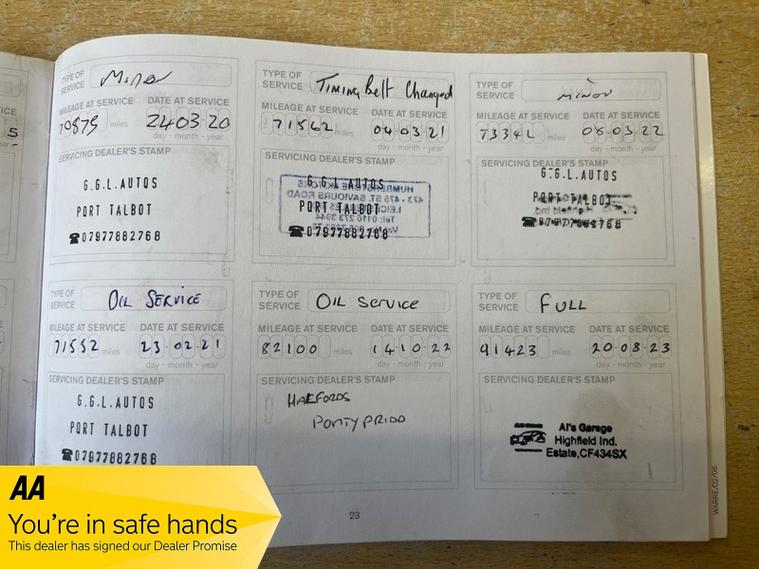 TYPE OF SERVICE Minor
MILEAGE AT SERVICE DATE AT SERVICE
70879 miles 24 03 20
day - month - year
SERVICING DEALER'S STAMP
G.G.L.AUTOS
PORT TALBOT
☎07977882768
TYPE OF SERVICE Timing Belt Changed
MILEAGE AT SERVICE DATE AT SERVICE
71562 miles 04 03 21
day - month - year
SERVICING DEALER'S STAMP
G.G.L.AUTOS
PORT TALBOT
☎07977882768
TYPE OF SERVICE MINOR
MILEAGE AT SERVICE DATE AT SERVICE
miles 03 22
day - month - year
SERVICING DEALER'S STAMP
G.G.L.AUTOS
PORT TALBOT
TYPE OF SERVICE OIL SERVICE
MILEAGE AT SERVICE DATE AT SERVICE
71552 miles 23 02 21
day - month - year
SERVICING DEALER'S STAMP
G.G.L.AUTOS
PORT TALBOT
☎07977882768
TYPE OF SERVICE OIL SERVICE
MILEAGE AT SERVICE DATE AT SERVICE
82100 miles 14 10 22
day - month - year
SERVICING DEALER'S STAMP
HALFORDS
PONTYPRIDD
TYPE OF SERVICE FULL
MILEAGE AT SERVICE DATE AT SERVICE
91423 miles 20 08 23
day - month - year
SERVICING DEALER'S STAMP
Al's Garage
Highfield Ind.
Estate,CF434SX
23
WARRE/02/06
AA
You're in safe hands
This dealer has signed our Dealer Promise